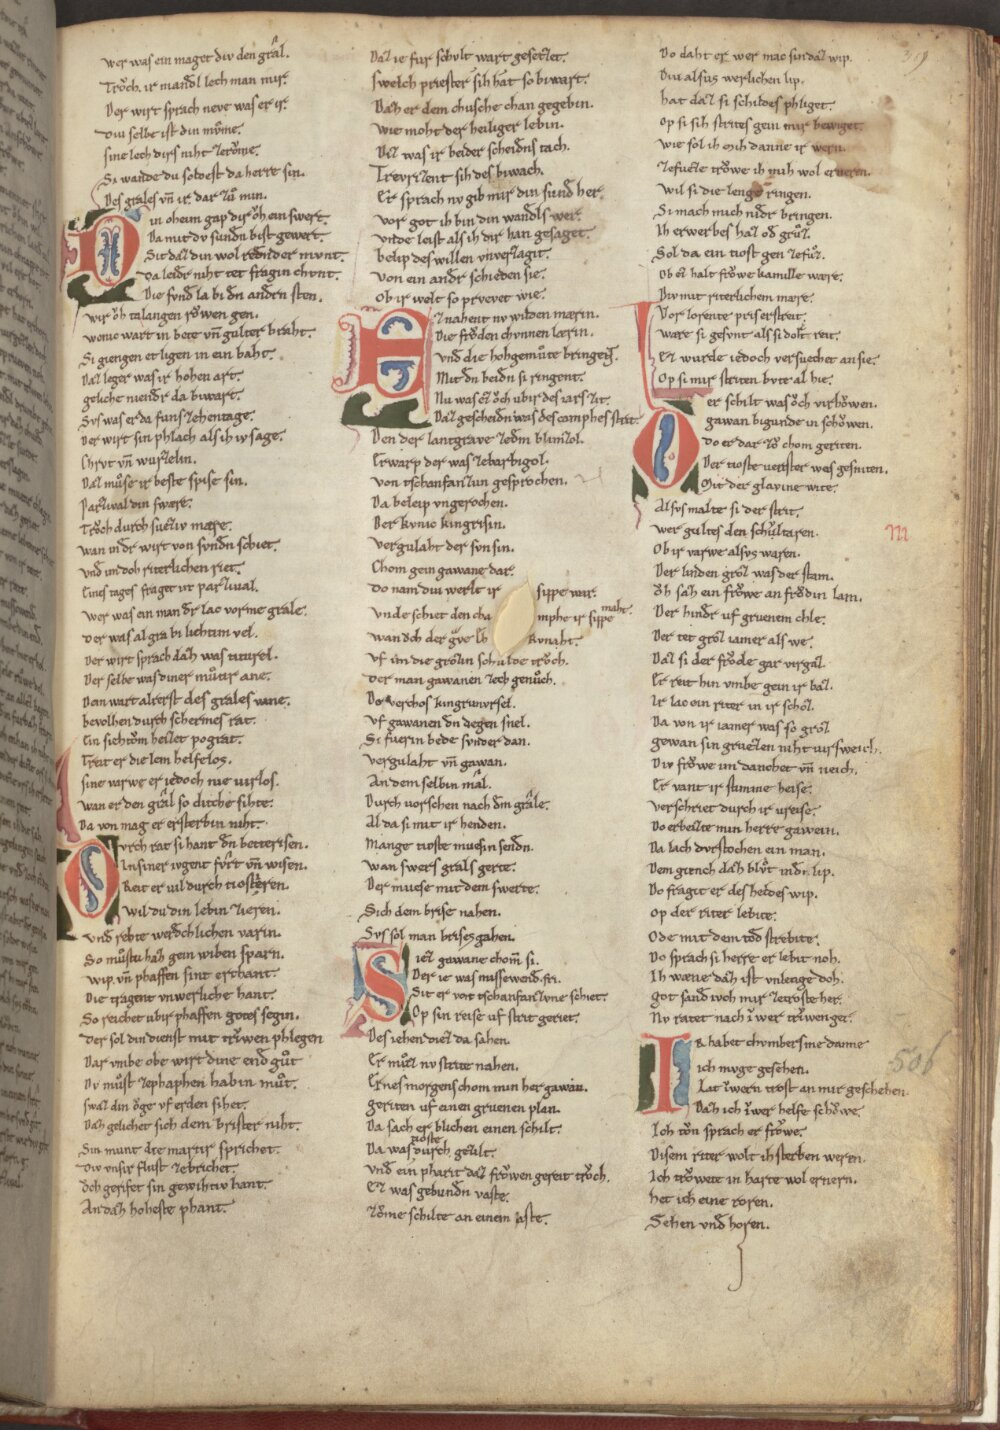 wer was ein maget div den grâl.
Trǒch. ir mandl lech man mir.
Der wirt sprach neve was er ir.
div selbe ist din mv̊me.
sine lech dirs niht zerǒme.
Si wande du soldest da herre sin.
Des grales vn̄ ir. dar zů min.
Din oheim gap dir ǒh ein swert.
Da mit dv sundn bist gewert.
Sit daz din wol redender mvnt.
da leidr niht tet fragin chunt.
Die svnd la bi dn andern sten.
wir ǒh talangen rǒwen gen.
wenic wart in bete vn̄ gulter braht.
Si giengen et ligen in ein baht.
Daz leger was ir hohen art.
geliche niendr da biwart.
Svs was er da funfzehen tage.
Der wirt sin phlach als ih iv sage.
Chrvt vn̄ wurzelin.
Daz mv̊se ir beste spise sin.
Parzival din swære.
Trǒch durch suziv mære.
wan in dr wirt von svndn schiet.
vnd im doh riterlichen riet.
Eines tages fraget in parzival.
wer was ein man dr lac vorme grale.
der was al gra bi liehtem vel.
Der wirt sprach daz was titurel.
Der selbe was diner mv̊tir ane.
Dem wart alrerst des grales vane.
bevolhen durch schermes rat.
Ein siehtǒm heizet pograt.
Treit er die lem helfelos.
sine varwe er iedoch nie virlos.
wan er den grâl so dicche sihte.
Da von mag er ersterbin niht.
Dvrch rat si hant dn betterisen.
In siner ivgent fv̊rt vn̄ wisen.
Reit er vil durch tiostēren.
Wil du din lebin zieren.
vnd rehte werdchlichen varin.
So mv̊stu haz gein wiben sparn.
wip vn̄ phaffen sint erchant.
Die tragent vnwerliche hant.
So reichet vbir phaffen gotes segin.
Der sol din dienst mit triwen phlegen
Dar vmbe obe wirt dine end gv̊t
Dv mv̊st ze phaphen habin mv̊t.
swaz din ǒge vf erden sihet.
Daz gelichet sich dem prister niht.
Sin munt die martir sprichet.
Div vnsir flust zebrichet.
ǒch grifet sin gewihtiv hant.
An daz hoheste phant.
Daz ie fur schvlt wart gesetzet.
swelch priester sih hat so biwart.
Daz er dem chusche chan gegebin.
wie moht der heiliger lebin.
Diz was ir beider scheidns tach.
Trevrizent sih des biwach.
Er sprach nv gib mir din sund her.
vor got ih bin din wandls wer.
vnde leist als ih dir han gesaget.
belip des willen vnverzagit.
Von ein andr schieden sie.
ob ir welt so prvevet wie.
Ez nahent nv wilden mærin.
Die frǒden chvnnen lærin.
vnd die hohgemv̊te bringent.
Mit dn beidn si ringent.
Nu was ez ǒch vbir des iars zit.
Daz gescheidn was des camphes strit.
Den der lantgrave zedm blimizol.
Erwarp der was zebarbigol.
von tschanfanzun gesprochen.
Da beleip vngerochen.
Der kvnic kingrisin.
vergulaht der svn sin.
Chom gein gawane dar.
do nam div werlt ir sippe war.
vnde schiet den champhe ir sippe maht.
wan ǒch der gve kvnaht.
vf im die grozin schulde trǒch.
der man gawanen zech genv̊ch.
Do verchos kingrimvrsel.
vf gawanen dn degen snel.
Si fuerin bede svnder dan.
vergulaht vn̄ gawan.
An dem selbin mâl.
Durch vorschen nach dm grâle.
Al da si mit ir henden.
Mange tioste muesin sendn.
wan swers grals gerte.
Der muese mit dem swerte.
Sich dem brise nahen.
Svs sol man brises gahen.
Siez gawane chom̄ si.
Der ie was missewend fri.
Sit er von tschanfanzvne schiet.
Op sin reise vf strit geriet.
Des iehen diez da sahen.
Er mv̊z nv strite nahen.
Eines morgens chom min her gawan.
geriten vf einen gruenen plan.
Da sach er blichen einen schilt.
Da was tioste durch gezilt.
vnd ein pharit daz frǒwen gereit trǒch.
Ez was gebundn vaste.
zǒme schilte an einem aste.
Do daht er wer mac sin daz wip.
Diu alsus werlichen lip.
hat daz si schiltes phliget.
Op si sih strites gein mir bewiget.
wie sol ih mih danne ir wern.
zefuezze trǒwe ih mih wol erneren.
Wil si die lenge ringen.
Si mach mich nidr bringen.
Ih erwerbes haz od grůz.
Sol da ein tiost gen zefůz.
Ob ez halt frǒwe kamille wære.
Div mit riterlichem mære.
Vor lorente pris erstreit.
wære si gesvnt als si dort reit.
Ez wurde iedoch versuechet an sie.
Op si mir striten byte al hie.
Der schilt was ǒch virhǒwen.
gawan bigunde in schǒwen.
do er dar zǒ chom geriten.
Der tioste venster was gesniten.
Mit der glavine wite.
Alsvs malte si der strit.
wer gultes den schiltæren.
Ob ir varwe alsvs waren.
Der linden grǒz was der stam.
ǒh saz ein frǒwe an frǒdin lam.
Der hindr vf gruenem chle.
Der tet grǒz iamer als we.
Daz si der frǒde gar virgaz.
Er reit hin vmbe gein ir baz.
Ir lac ein riter in ir schǒz.
Da von ir iamer was so grǒz
gewan sin gruezen niht virsweich.
Div frǒwe im danchet vn̄ neich.
Er vant ir stimme heise.
verschriet durch ir vreise.
Do erbeizte min herre gawein.
Da lach dvrstochen ein man.
Dem giench daz blv̊t indn lip.
Do fragit er des heldes wip.
op der riter lebite.
Ode mit dem tǒd strebite.
Do sprach si herre er lebit noh.
Ih wæne daz ist vnlenge doh.
got sand ivch mir zetroste her.
Nv ratet nach iwer triwen ger.
Ir habet chvmbers me danne
ich mvge gesehen.
Lat iwern trost an mir geschehen.
Daz ich iwer helfe schǒwe
Ich tǒn sprach er frǒwe.
Disem riter wolt ih sterben weren.
Ich trǒwete in harte wol ernern.
het ich eine roren.
Sehen vnd horen.
506
m